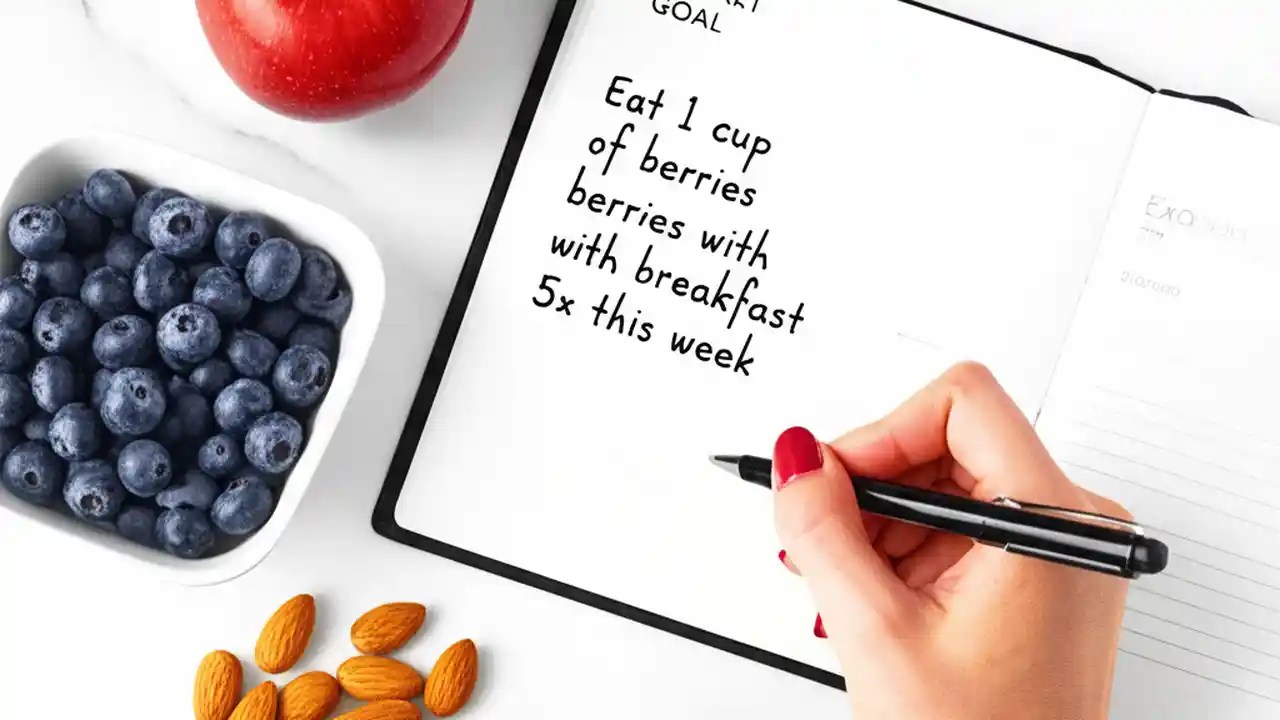 GOAL
Eat 1 cup
of berries
berries with
with breakfast
5x this week